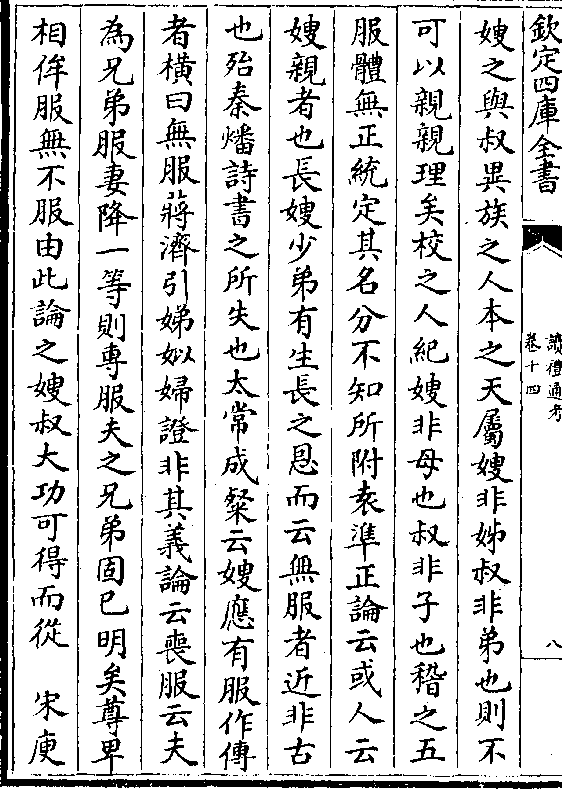 欽定四庫全書
讀禮通考
卷十四
八
嫂之與叔異族之人本之天屬嫂非姊叔非弟也則不
可以親親理矣校之人紀嫂非母也叔非子也稽之五
服體無正統定其名分不知所附袁準正論云或人云
嫂親者也長嫂少弟有生長之恩而云無服者近非古
也殆秦燔詩書之所失也太常成粲云嫂應有服作傳
者橫曰無服蔣濟引娣姒婦證非其義論云喪服云夫
為兄弟服妻降一等則專服夫之兄弟固已明矣尊卑
相侔服無不服由此論之嫂叔大功可得而從　宋庾